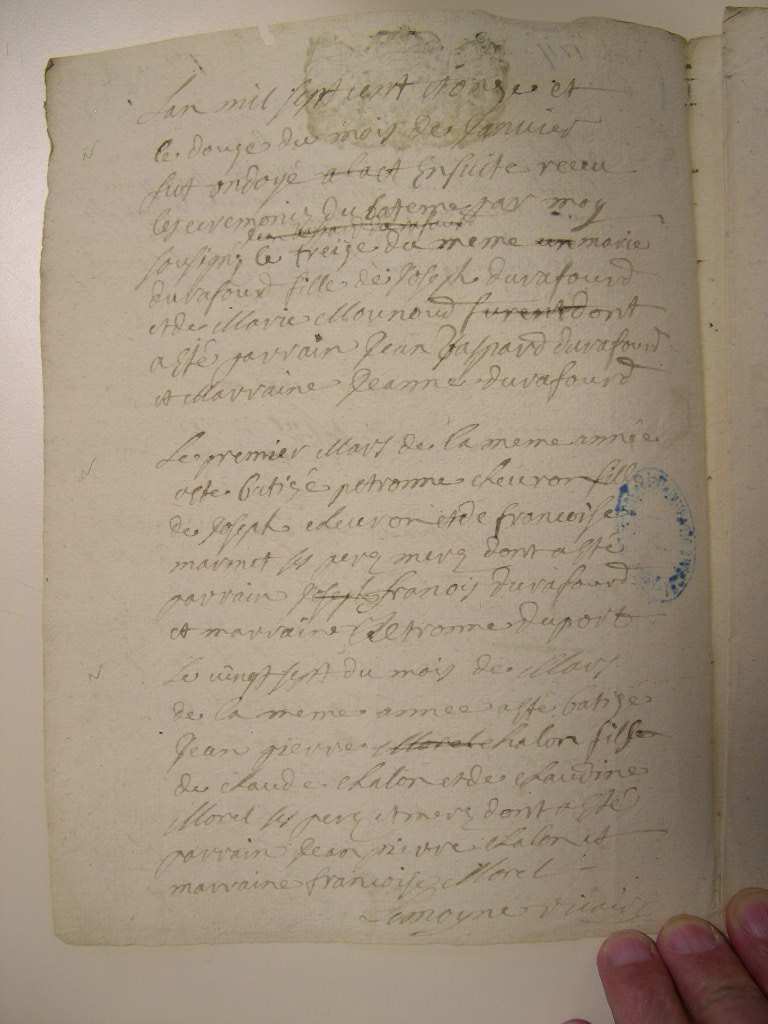 Lan mil sept cent et onze et
le douze du mois de Janvier
fut ondoyé a la et Ensuite receu
les ceremonies du bateme par moy
sousigné le treize du meme un marie
durafourd fille de Joseph durafourd
et de Marie Mounoud furent dont
a esté parrain Jean Gaspard durafourd
et Marraine Jeanne durafourd
Le premier Mars de la meme année
a este batizé petronne cheuron fille
de Joseph cheuron et de francoise
marmet ses pere mere dont a esté
parrain Joseph francois durafourd
et marraine Petronne duport
Le vingt sept du mois de Mars
de la meme annee a esté batizé
Jean pierre Morel chalon fils
de claude chalon et de claudine
Morel ses pere et mere dont a esté
parrain Jean pierre chalon et
marraine francoise Morel
Lemoyne vicaire